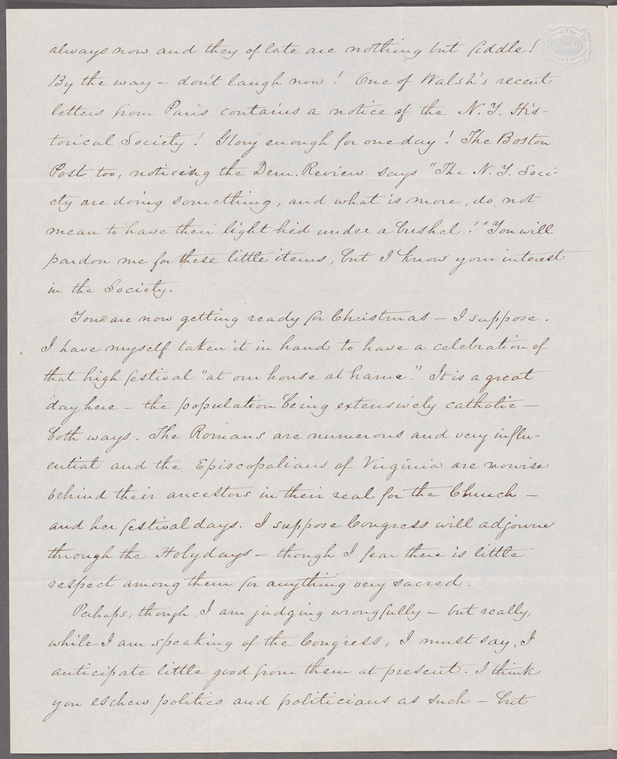 always now and they of late are nothing but fiddle!
By the way – don't laugh now! One of Walsh's recent
letters from Paris contains a notice of the N.Y. His-
torical Society! Glory enough for one day! The Boston
Post too, noticing the Dem. Review says "The N.Y. Soci-
ety are doing something, and what is more, do not
mean to have their light hid under a bushel!" You will
pardon me for these little items, but I know your interest
in the Society.
You are now getting ready for Christmas – I suppose.
I have myself taken it in hand to have a celebration of
that high festival "at our house at hame." It is a great
day here – the population being extensively catholic –
both ways. The Romans are numerous and very influ-
ential and the Episcopalians of Virginia are nowise
behind their ancestors in their zeal for the Church –
and her festival days. I suppose Congress will adjourn
through the Holydays – though I fear there is little
respect among them for anything very sacred.
Perhaps, though I am judging wrongfully – but really,
while I am speaking of the Congress, I must say, I
anticipate little good from them at present. I think
you eschew politics and politicians as such – but